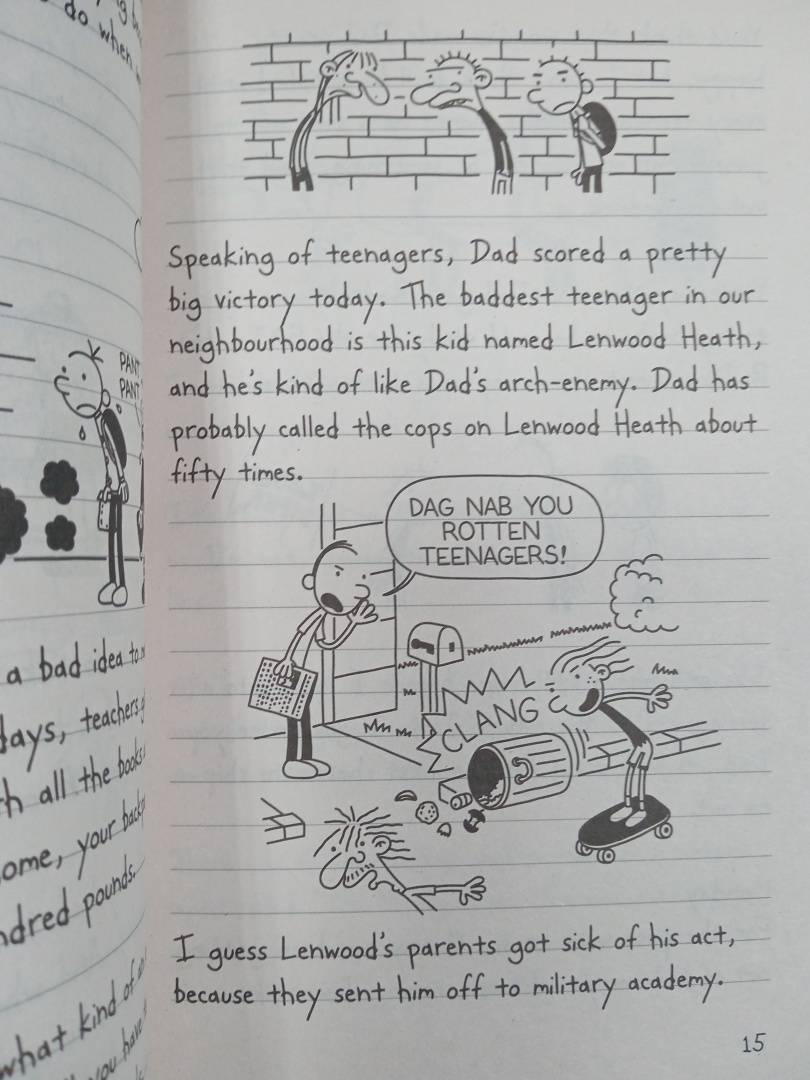 do when
PANT
PANT
a bad idea to
days, teachers
h all the books
ome, your back
ndred pounds.
what kind of
you have
Speaking of teenagers, Dad scored a pretty
big victory today. The baddest teenager in our
neighbourhood is this kid named Lenwood Heath,
and he's kind of like Dad's arch-enemy. Dad has
probably called the cops on Lenwood Heath about
fifty times.
DAG NAB YOU
ROTTEN
TEENAGERS!
CLANG
I guess Lenwood's parents got sick of his act,
because they sent him off to military academy.
15